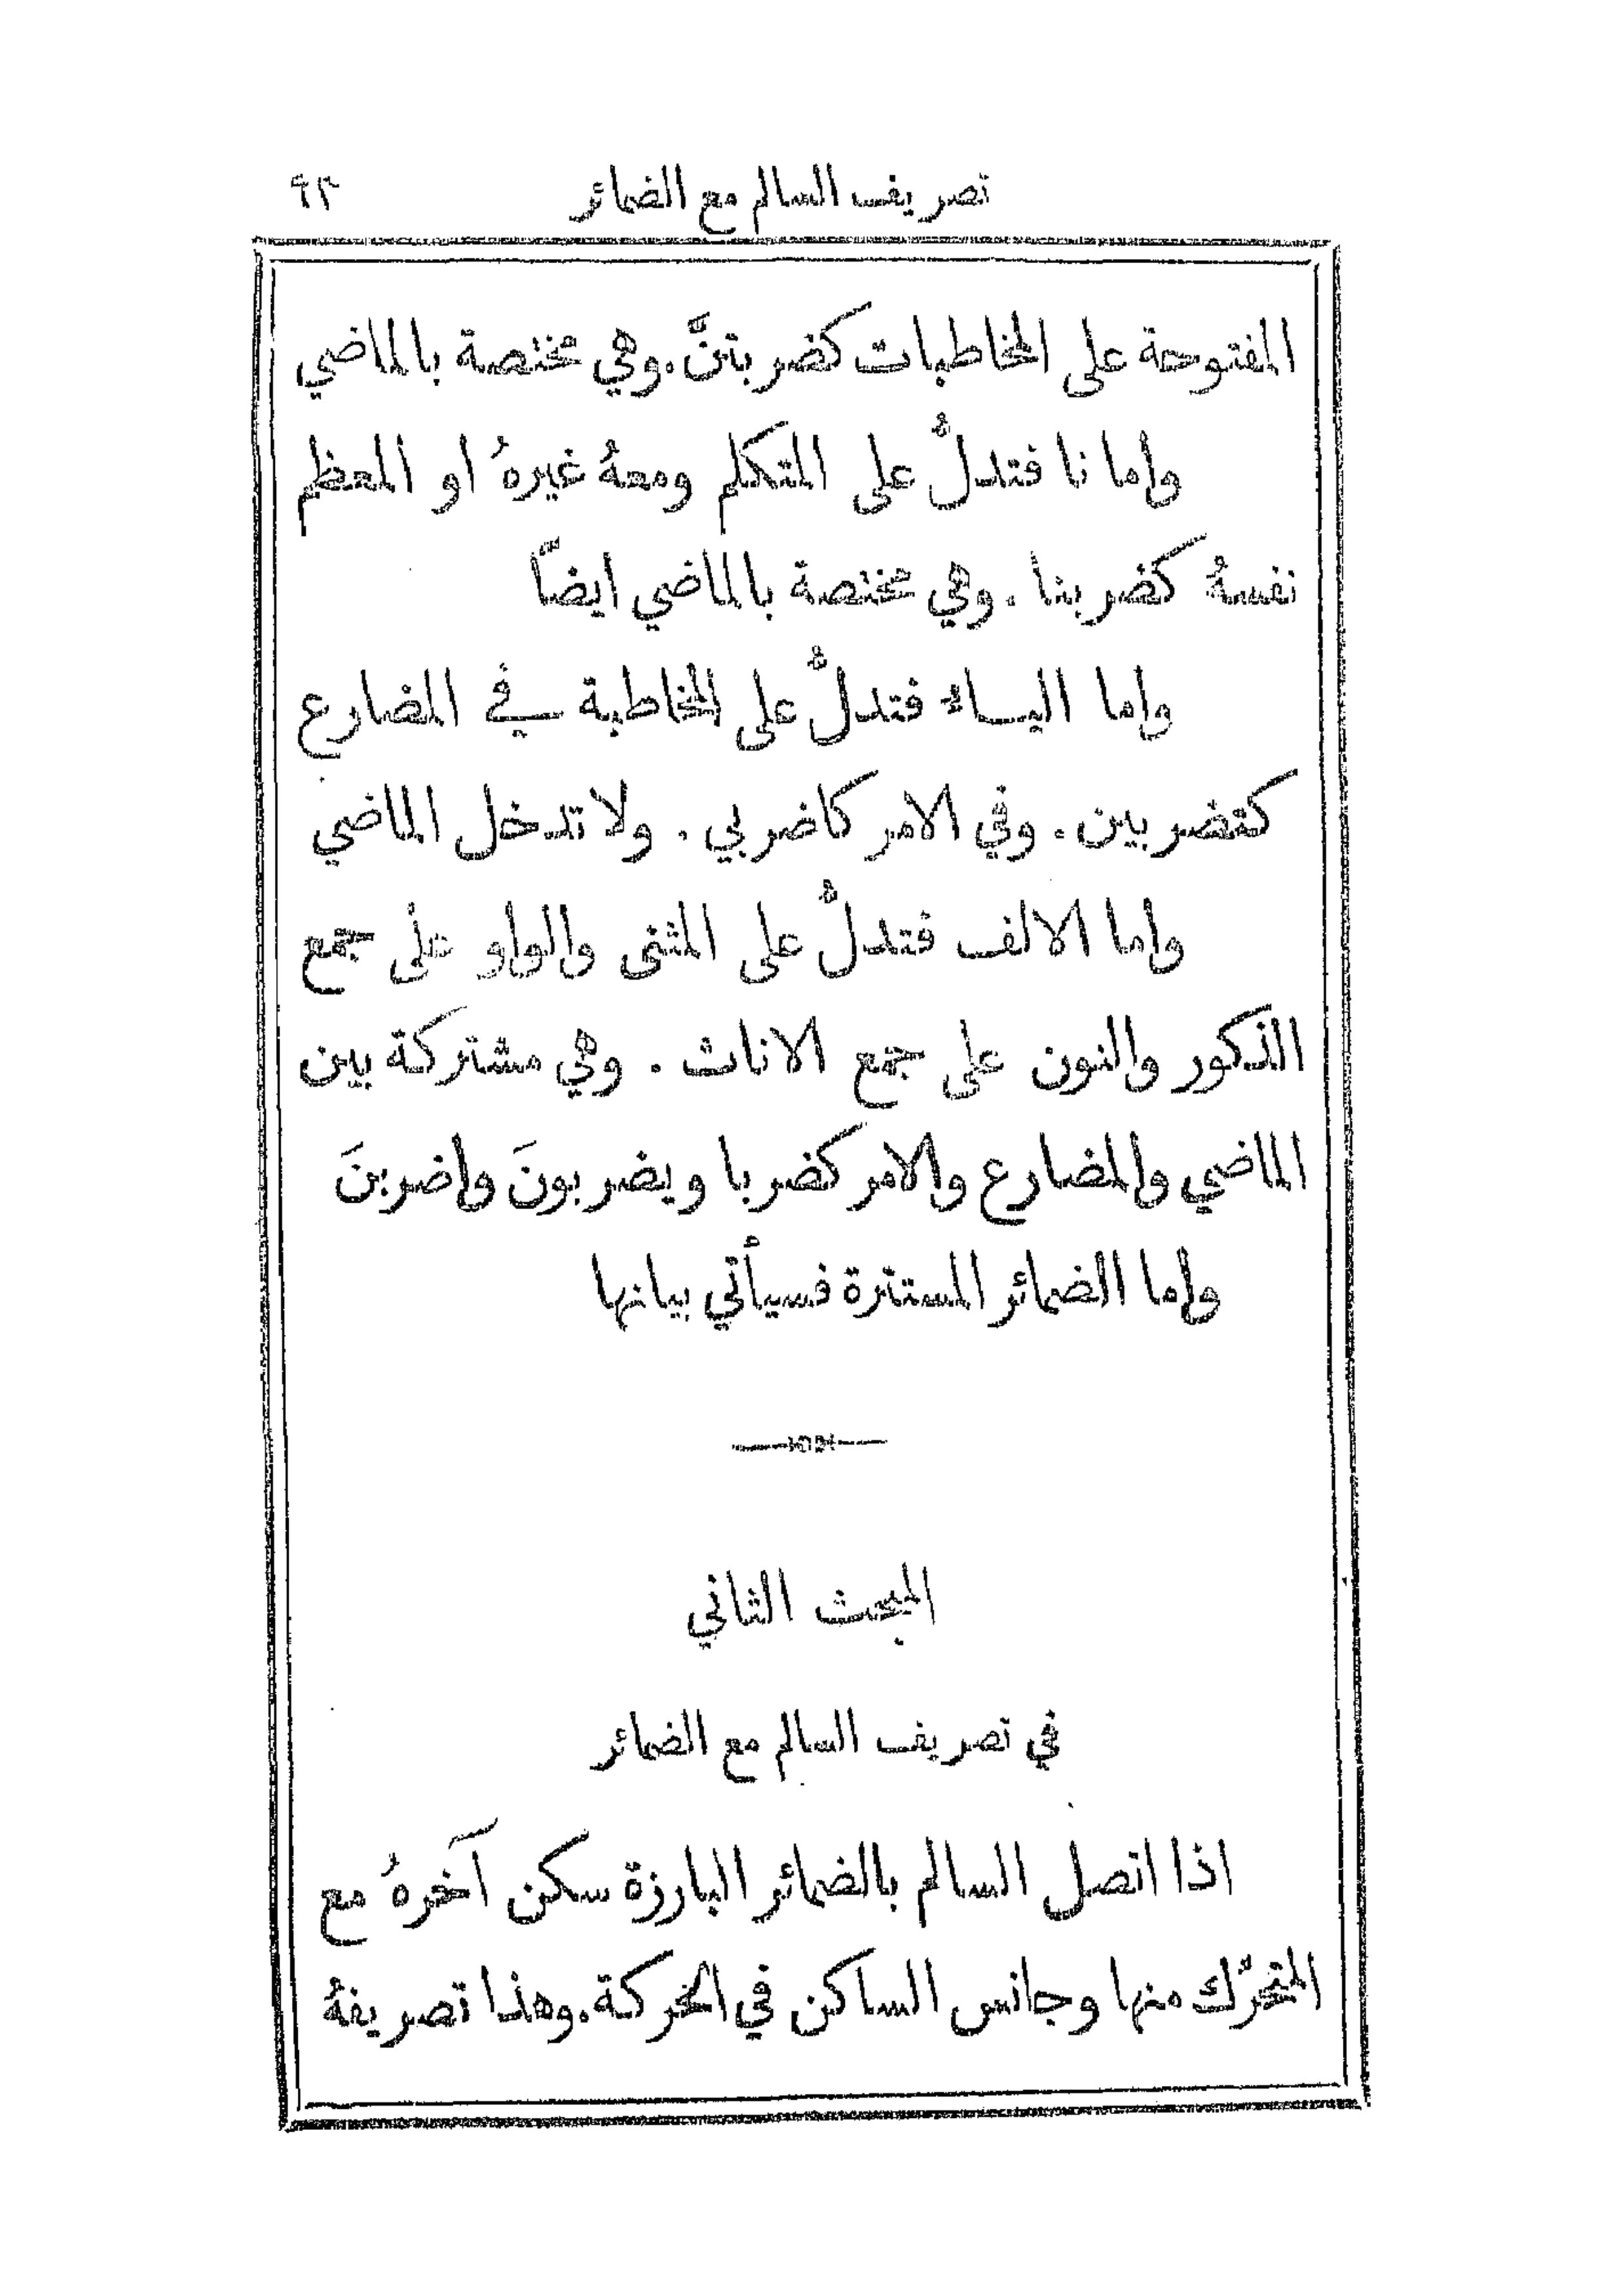 تصريف السالم مع الضمائر ٩٣
المفتوحة على المخاطبات كضربتنَّ. وهي مختصة بالماضي
واما نا فتدلُّ على المتكلم ومعهُ غيرهُ او المعظم
نفسهُ كضربنا. وهي مختصة بالماضي ايضاً
واما الياء فتدلُّ على المخاطبة في المضارع
كتضربين. وفي الامر كاضربي. ولا تدخل الماضي
واما الالف فتدلُّ على المثنى والواو على جمع
الذكور والنون على جمع الاناث. وهي مشتركة بين
الماضي والمضارع والامر كضربا ويضربونَ واضربنَ
واما الضمائر المستترة فسيأتي بيانها
المبحث الثاني
في تصريف السالم مع الضمائر
اذا اتصل السالم بالضمائر البارزة سكن آخرهُ مع
المتحرّك منها وجانس الساكن في الحركة. وهذا تصريفهُ